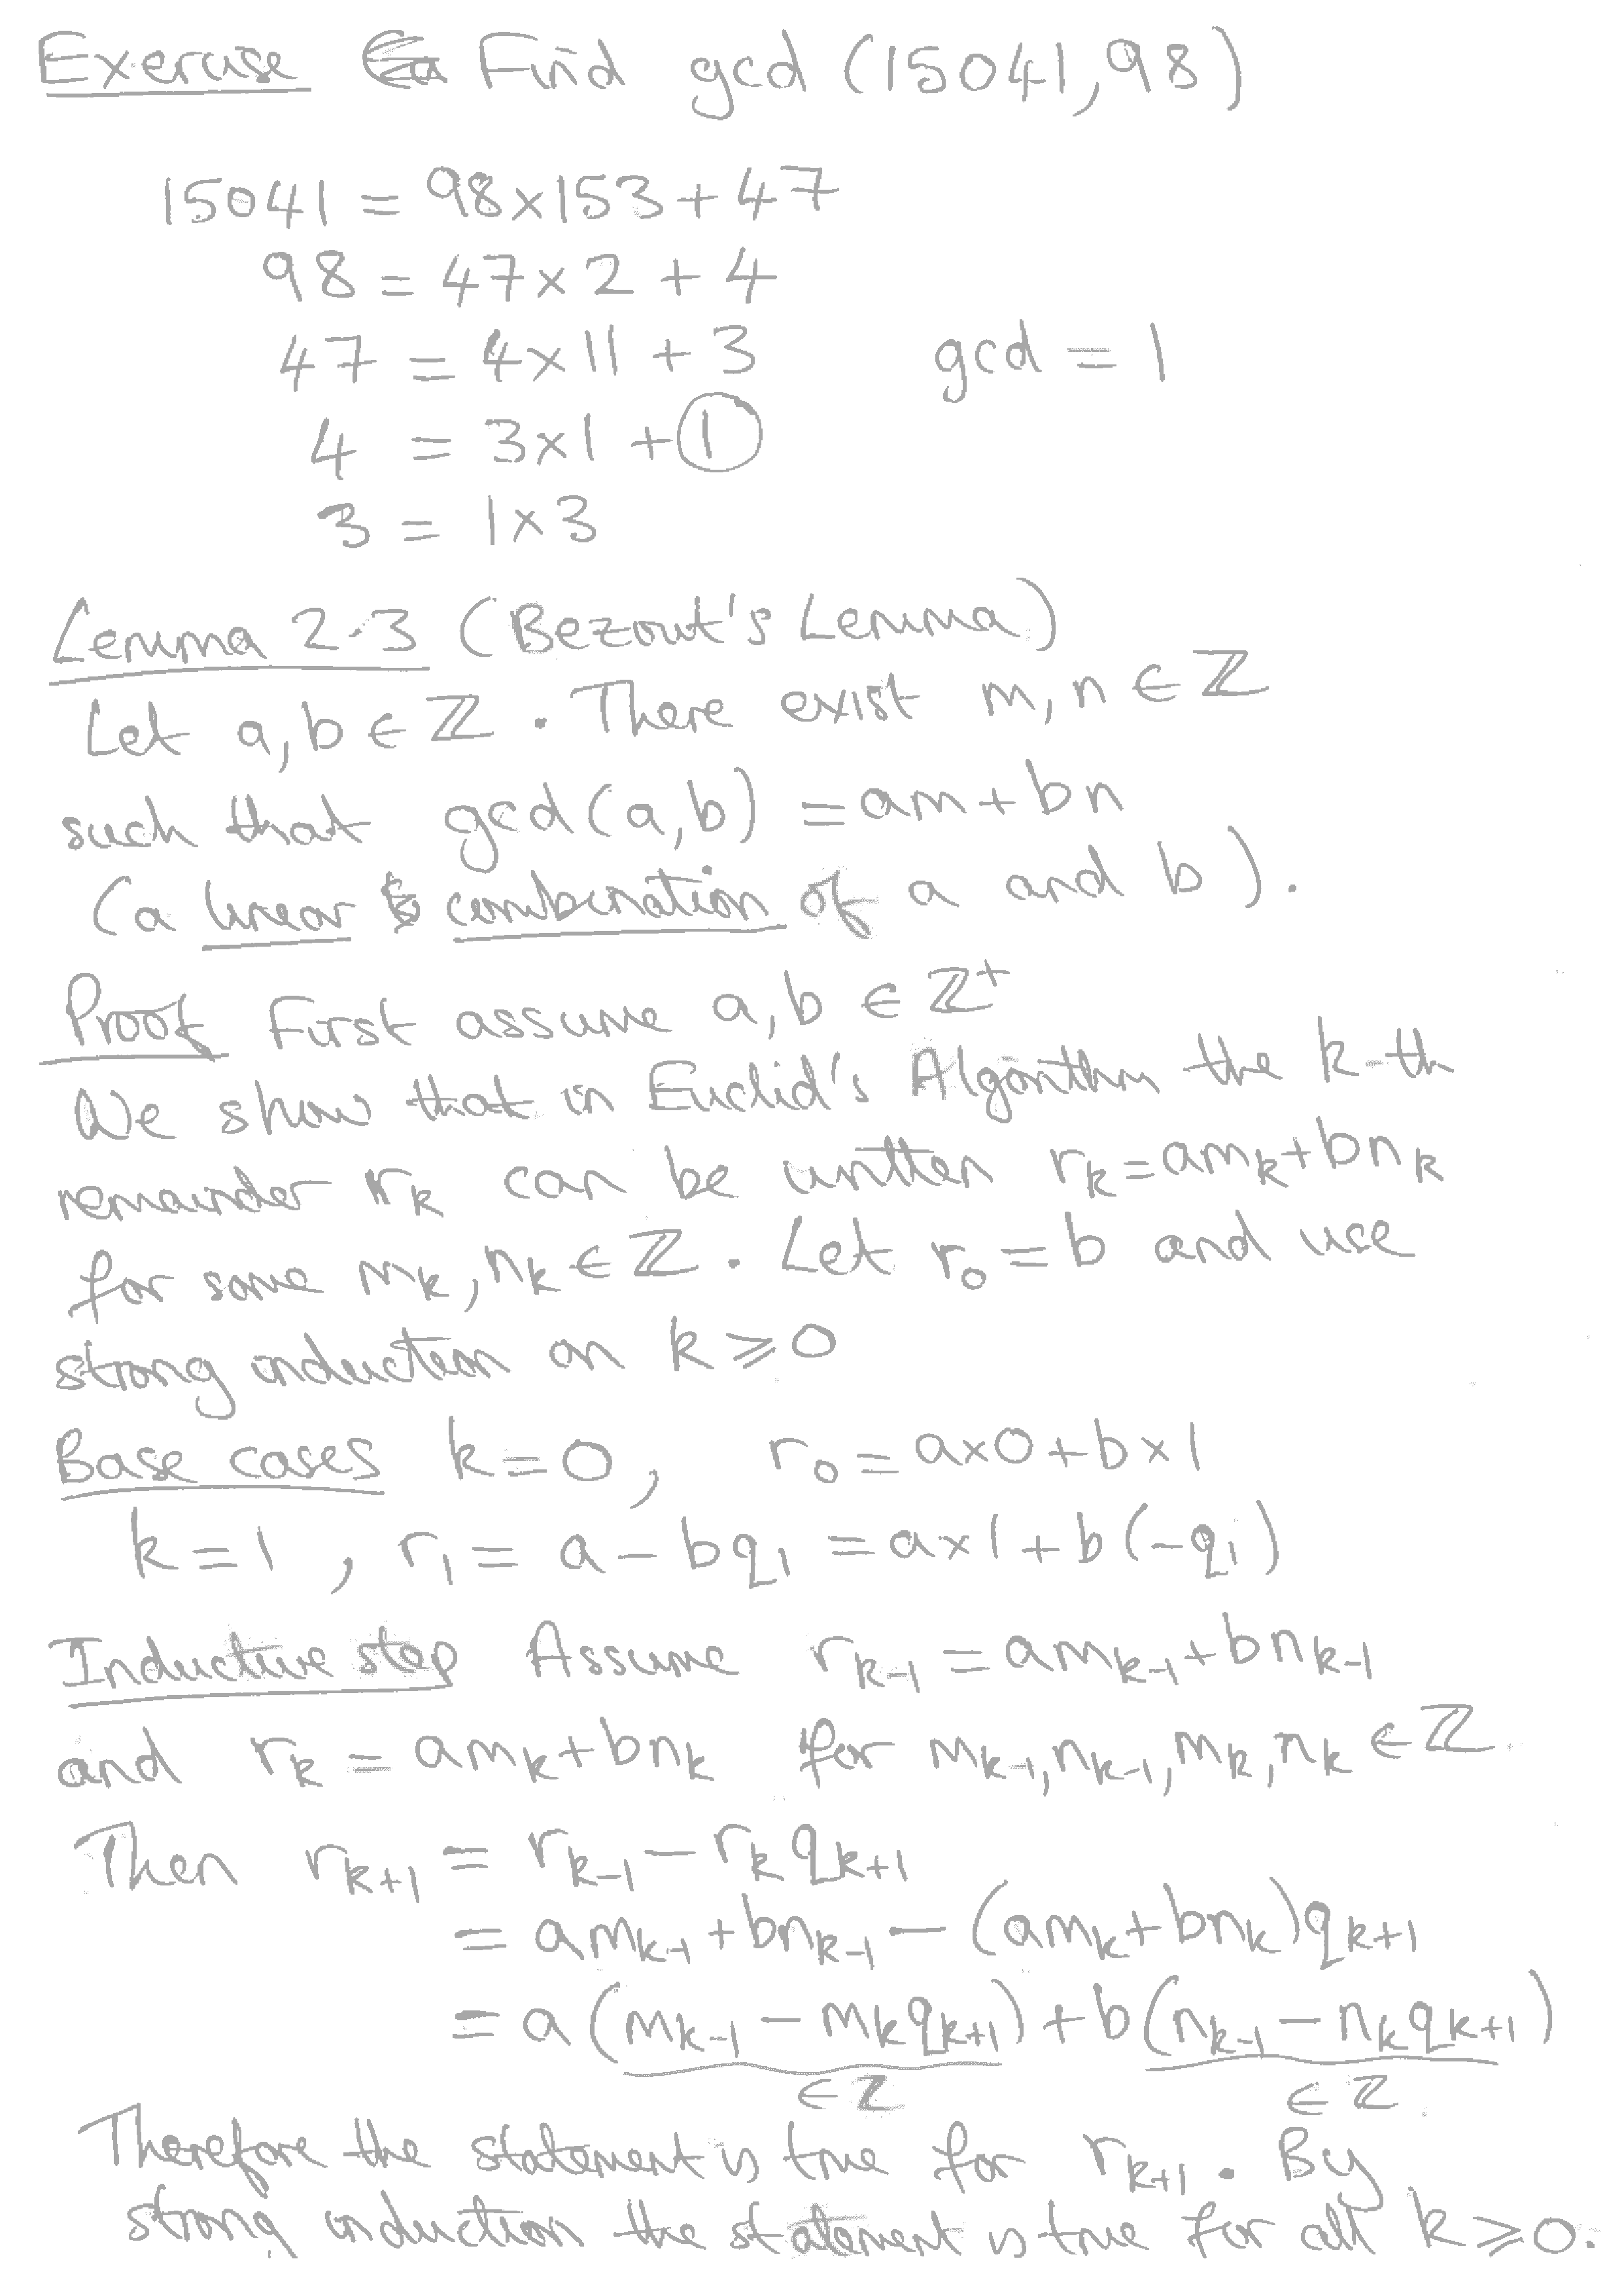 Exercise Find gcd (15041,98)
15041 = 98×153 + 47
98 = 47×2 + 4
47 = 4×11 + 3 gcd = 1
4 = 3×1 + 1
3 = 1×3
Lemma 2.3 (Bezout's Lemma)
Let a, b ∈ ℤ. There exist m, n ∈ ℤ
such that gcd(a,b) = am + bn
(a linear combination of a and b).
Proof First assume a, b ∈ ℤ⁺
We show that in Euclid's Algorithm the k-th
remainder rₖ can be written rₖ = amₖ + bnₖ
for some mₖ, nₖ ∈ ℤ. Let r₀ = b and use
strong induction on k ⩾ 0
Base cases k = 0, r₀ = a×0 + b×1
k = 1, r₁ = a − bq₁ = a×1 + b(−q₁)
Inductive step Assume rₖ₋₁ = amₖ₋₁ + bnₖ₋₁
and rₖ = amₖ + bnₖ for mₖ₋₁, nₖ₋₁, mₖ, nₖ ∈ ℤ.
Then rₖ₊₁ = rₖ₋₁ − rₖqₖ₊₁
= amₖ₋₁ + bnₖ₋₁ − (amₖ + bnₖ)qₖ₊₁
= a(mₖ₋₁ − mₖqₖ₊₁) + b(nₖ₋₁ − nₖqₖ₊₁)
∈ ℤ ∈ ℤ.
Therefore the statement is true for rₖ₊₁. By
strong induction the statement is true for all k ⩾ 0.